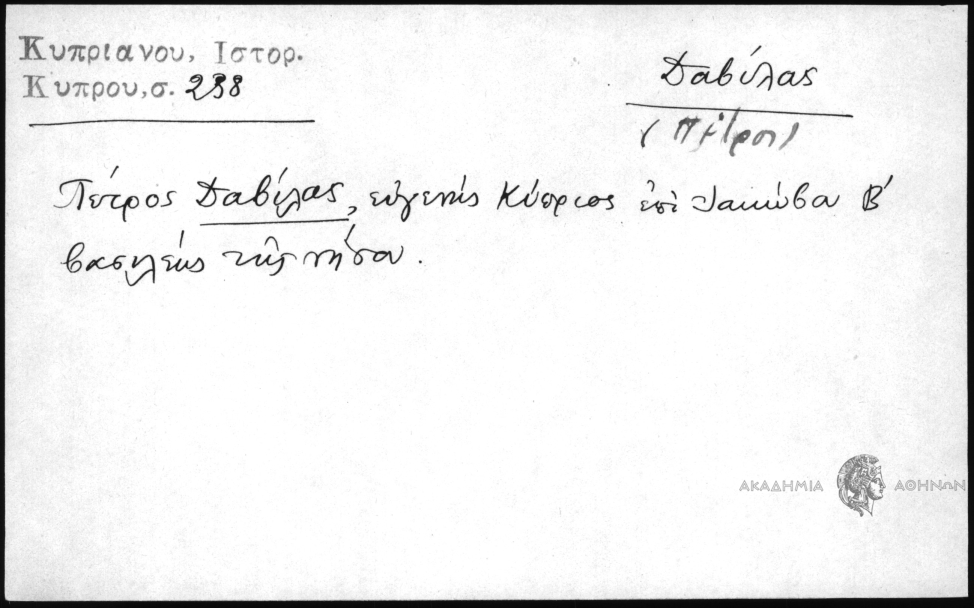 Κυπριανου, Ιστορ.
Κυπρου, σ. 238
Δαβίλας
(Πέτρος)
Πέτρος Δαβίλας, εὐγενής Κύπριος ἐπὶ Ἰακώβου Β΄
βασιλέως τῆς νήσου.
ΑΚΑΔΗΜΙΑ ΑΘΗΝΩΝ